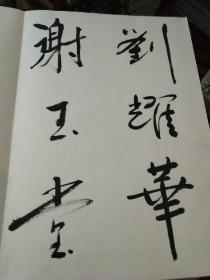 劉耀華
謝玉堂